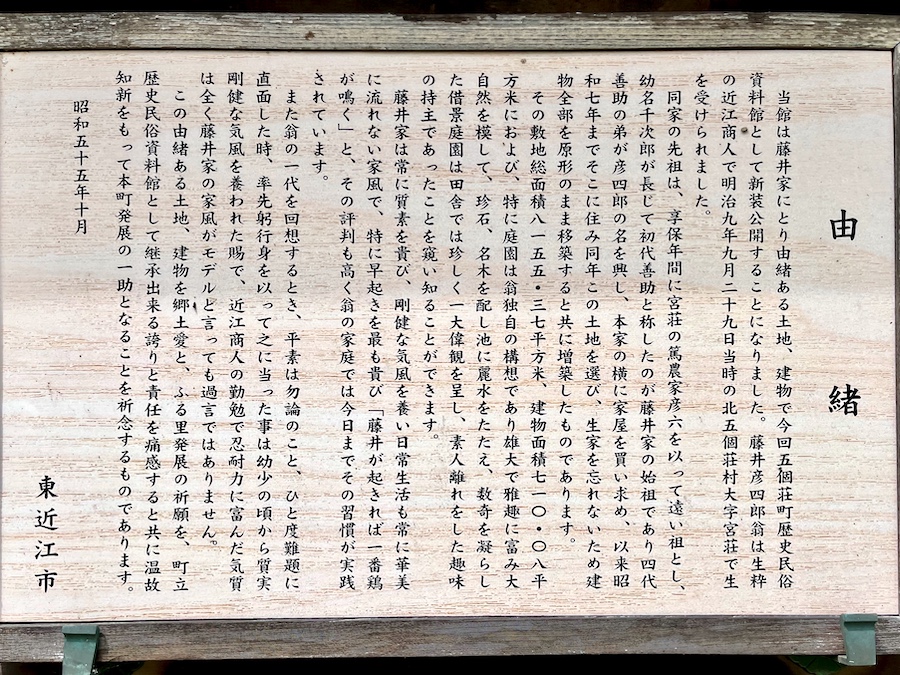 由緒
当館は藤井家にとり由緒ある土地、建物で今回五個荘町歴史民俗
資料館として新装公開することになりました。藤井彦四郎翁は生粋
の近江商人で明治九年九月二十九日当時の北五個荘村大字宮荘で生
を受けられました。
同家の先祖は、享保年間に宮荘の篤農家彦六を以って遠い祖とし、
幼名千次郎が長じて初代善助と称したのが藤井家の始祖であり四代
善助の弟が彦四郎の名を興し、本家の横に家屋を買い求め、以来昭
和七年までそこに住み同年この土地を選び、生家を忘れないため建
物全部を原形のまま移築すると共に増築したものであります。
その敷地総面積八一五五・三七平方米、建物面積七一〇・〇八平
方米におよび、特に庭園は翁独自の構想であり雄大で雅趣に富み大
自然を模して、珍石、名木を配し池に麗水をたたえ、数奇を凝らし
た借景庭園は田舎では珍しく一大偉観を呈し、素人離れをした趣味
の持主であったことを窺い知ることができます。
藤井家は常に質素を貴び、剛健な気風を養い日常生活も常に華美
に流れない家風で、特に早起きを最も貴び「藤井が起きれば一番鶏
が鳴く」と、その評判も高く翁の家庭では今日までその習慣が実践
されています。
また翁の一代を回想するとき、平素は勿論のこと、ひと度難題に
直面した時、率先躬行身を以って之に当った事は幼少の頃から質実
剛健な気風を養われた賜で、近江商人の勤勉で忍耐力に富んだ気質
は全く藤井家の家風がモデルと言っても過言ではありません。
この由緒ある土地、建物を郷土愛と、ふる里発展の祈願を、町立
歴史民俗資料館として継承出来る誇りと責任を痛感すると共に温故
知新をもって本町発展の一助となることを祈念するものであります。
昭和五十五年十月
東近江市